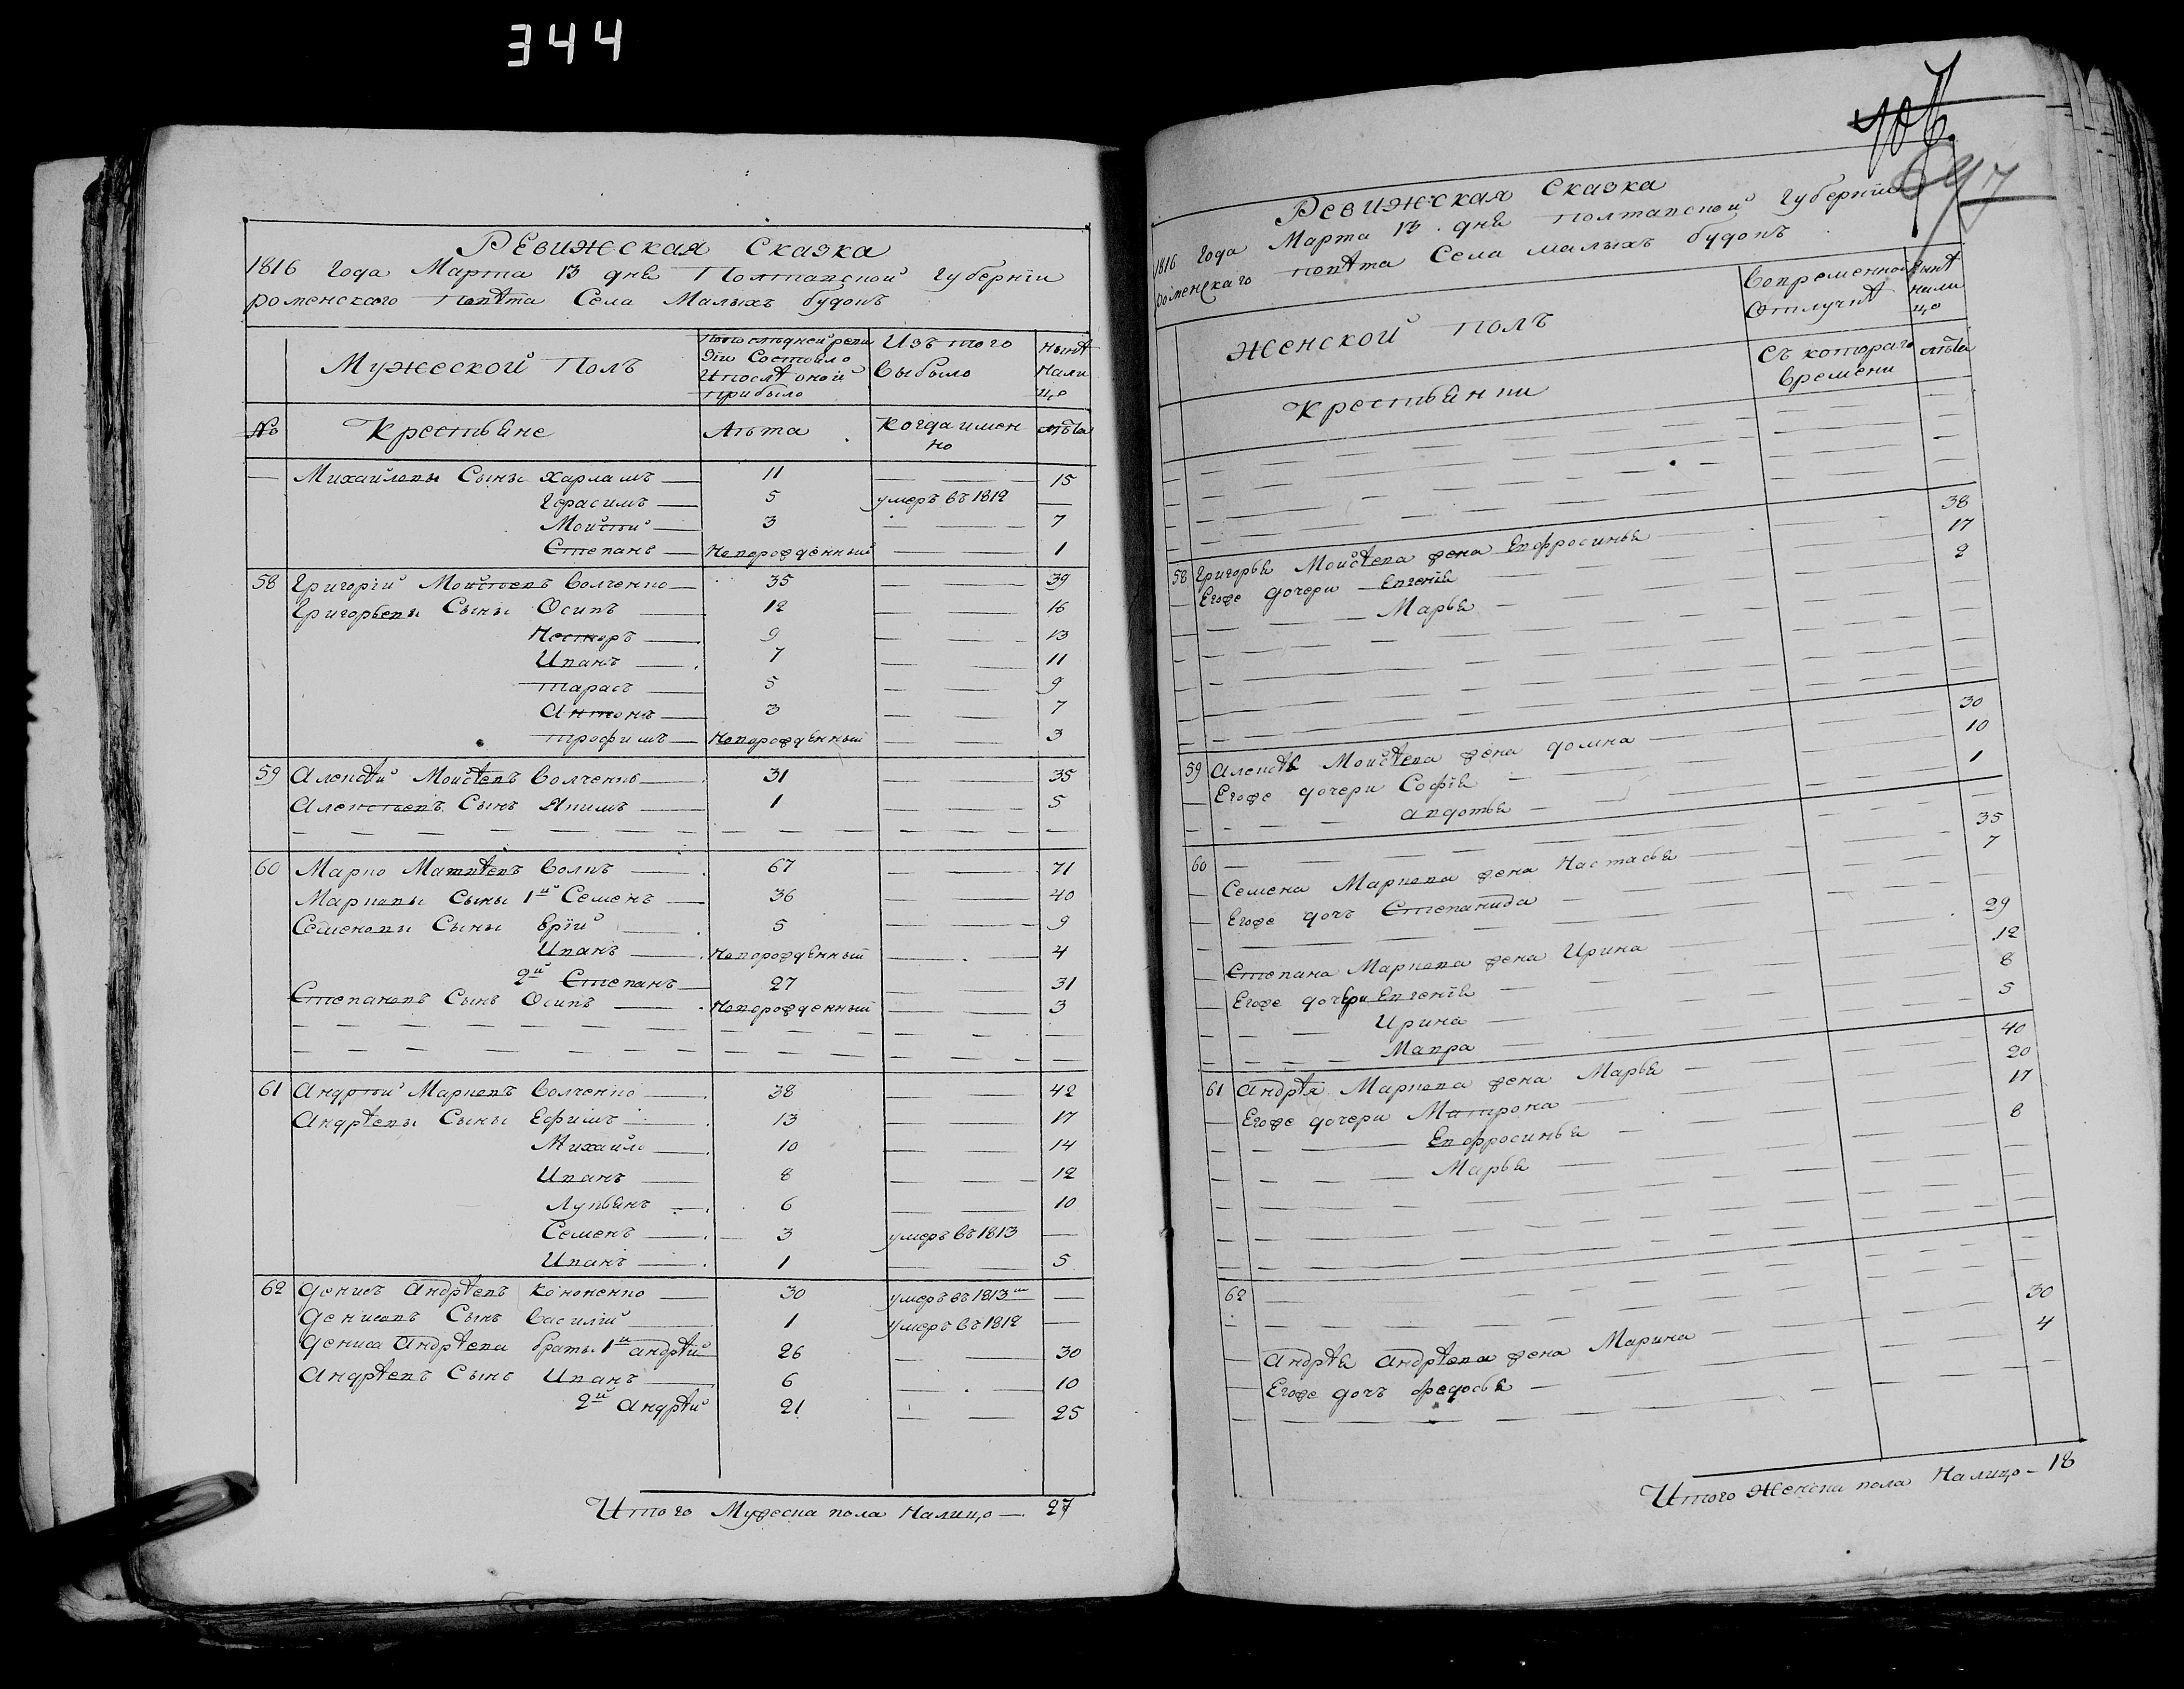 344
Ревижская Сказка
1816 Года Марта 13 дня Полтавской Губернїи
роменского Повѣта Села Малыхъ будокъ
Мужеской Полъ
По послѣдней реви
зїи Состояло
И послѣ оной
прибыло
Изъ того
выбыло
Нынѣ
Нали
цо
№
Крестьяне
Лѣта
Когда имен
но
лѣта
Михайловы Сыны Харламъ 11 15
Герасимъ 5 умеръ въ 1812
Мойсѣй 3 7
Степанъ Новорожденный 1
58 Григорїй Мойсѣевъ Волченко 35 39
Григорьевы Сыны Осипъ 12 16
Несторъ 9 13
Иванъ 7 11
Тарасъ 5 9
Антонъ 3 7
Трофимъ Новорожденный 3
59 Алексѣй Мойсѣевъ Волченко 31 35
Алексѣевъ Сынъ Якимъ 1 5
60 Марко Матвѣевъ Волкъ 67 71
Марковы Сыны 1й Семенъ 36 40
Семеновы Сыны Юрїй 5 9
Иванъ Новорожденный 4
2й Степанъ 27 31
Степановъ Сынъ Осипъ Новорожденный 3
61 Андрѣй Марковъ Волченко 38 42
Андрѣевы Сыны Ефимъ 13 17
Михайло 10 14
Иванъ 8 12
Лукьянъ 6 10
Семенъ 3 умеръ въ 1813
Иванъ 1 5
62 Денисъ Андрѣевъ Кононенко 30 умеръ въ 1813м
Денисовъ Сынъ Василїй 1 умеръ въ 1812
Дениса Андрѣева братья 1й Андрѣй 26 30
Андрѣевъ Сынъ Иванъ 6 10
2й Андрѣй 21 25
Итого Мужеска пола Налицо 27
697
Ревижская Сказка
1816 Года Марта 13 дня Полтавской Губернїи
роменскаго повѣта Села малыхъ будокъ
Женской полъ
Во временной
Отлучкѣ
Нынѣ
нали
цо
Крестьянки
Съ котораго
времени
лѣта
58 Григорья Мойсѣева жена Евфросинья 38
Егоже дочери Евгенїя 17
Марья 2
59 Алексѣя Мойсѣева жена домна 30
Егоже дочери Софїя 10
Авдотья 1
60
Семена Маркова жена Настасья 35
Егоже дочь Степанида 7
Степана Маркова жена Ирина 29
Егоже дочери Евгенїя 12
Ирина 8
Мавра 5
61 Андрѣя Маркова жена Марья 40
Егоже дочери Матрона 20
Евфросинья 17
Марья 8
62
Андрѣя Андрѣева жена Марина 30
Егоже дочь Федосья 4
Итого Женска пола Налицо 18